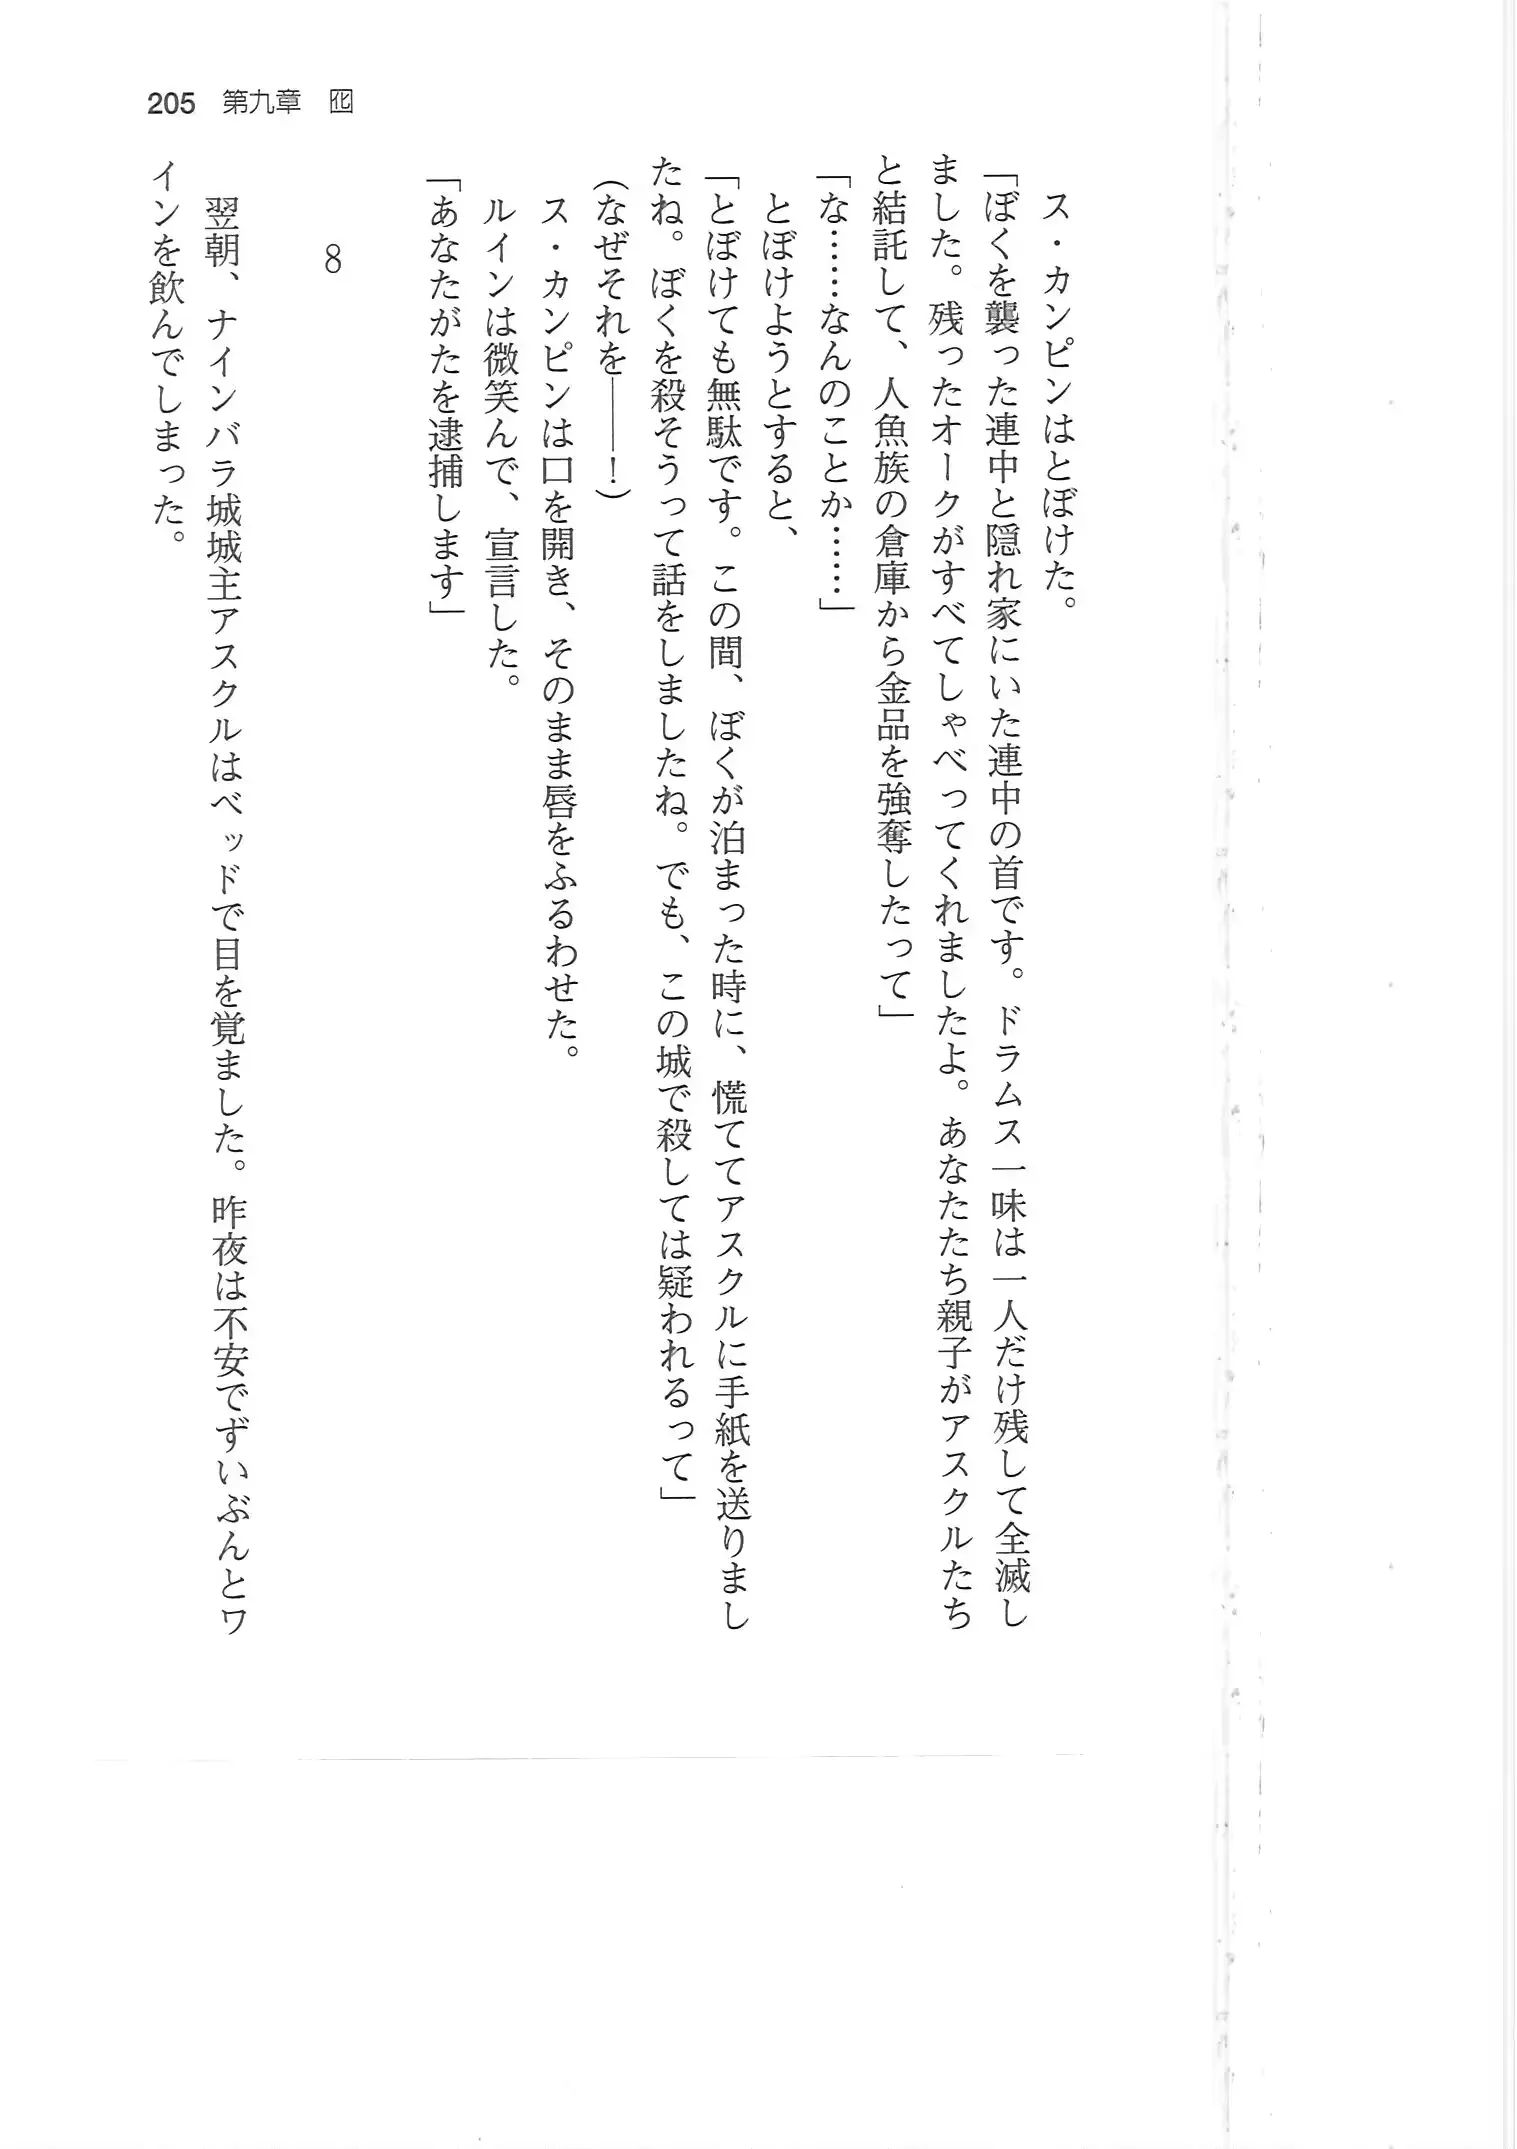 205 第九章 囮
ス・カンピンはとぼけた。
「ぼくを襲った連中と隠れ家にいた連中の首です。ドラムス一味は一人だけ残して全滅し
ました。残ったオークがすべてしゃべってくれましたよ。あなたたち親子がアスクルたち
と結託して、人魚族の倉庫から金品を強奪したって」
「な……なんのことか……」
とぼけようとすると、
「とぼけても無駄です。この間、ぼくが泊まった時に、慌ててアスクルに手紙を送りまし
たね。ぼくを殺そうって話をしましたね。でも、この城で殺しては疑われるって」
（なぜそれを――！）
ス・カンピンは口を開き、そのまま唇をふるわせた。
ルインは微笑んで、宣言した。
「あなたがたを逮捕します」
8
翌朝、ナインバラ城城主アスクルはベッドで目を覚ました。昨夜は不安でずいぶんとワ
インを飲んでしまった。